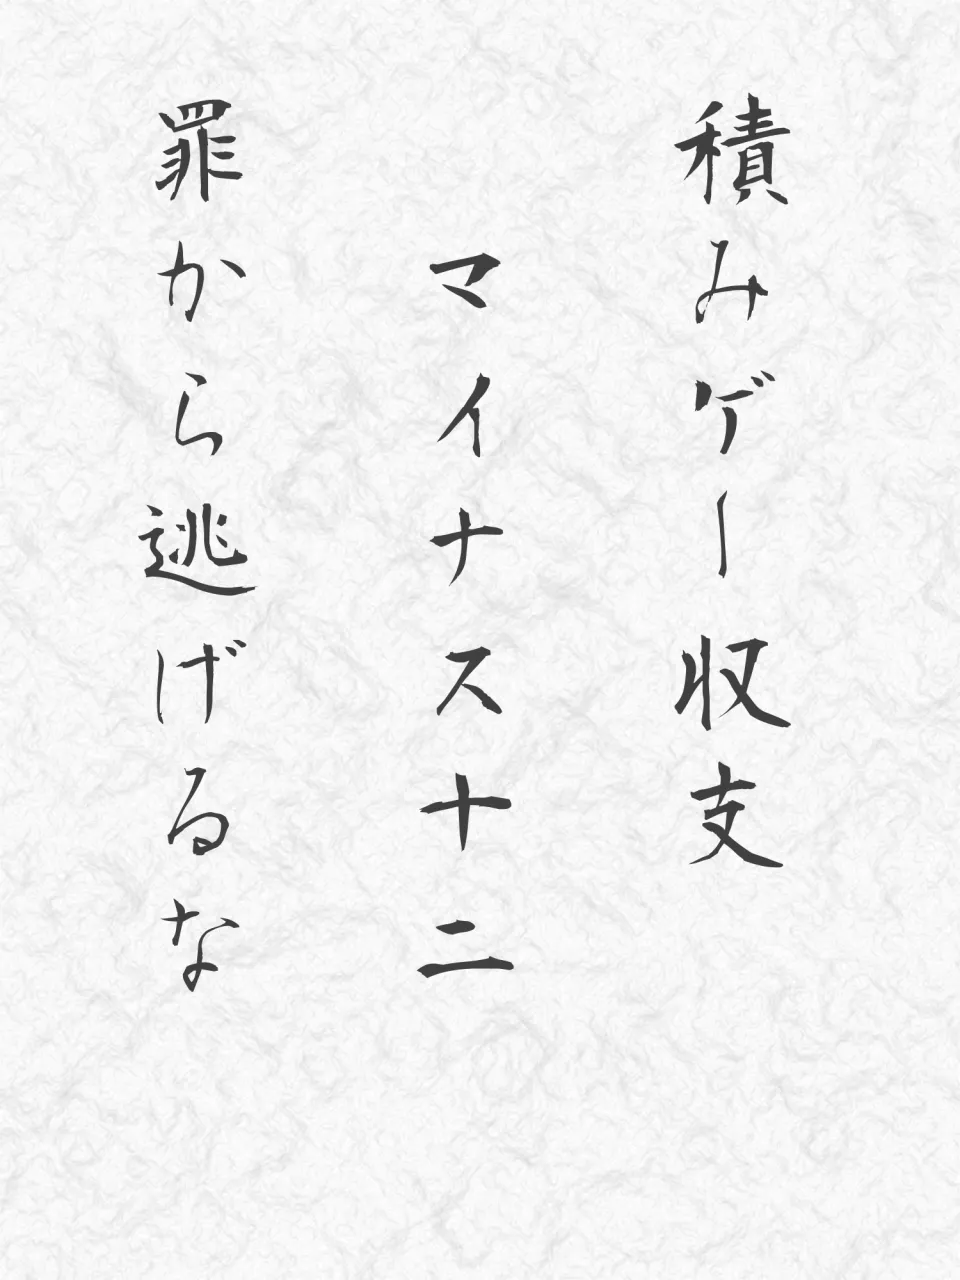 積みゲー収支
マイナス十二
罪から逃げるな